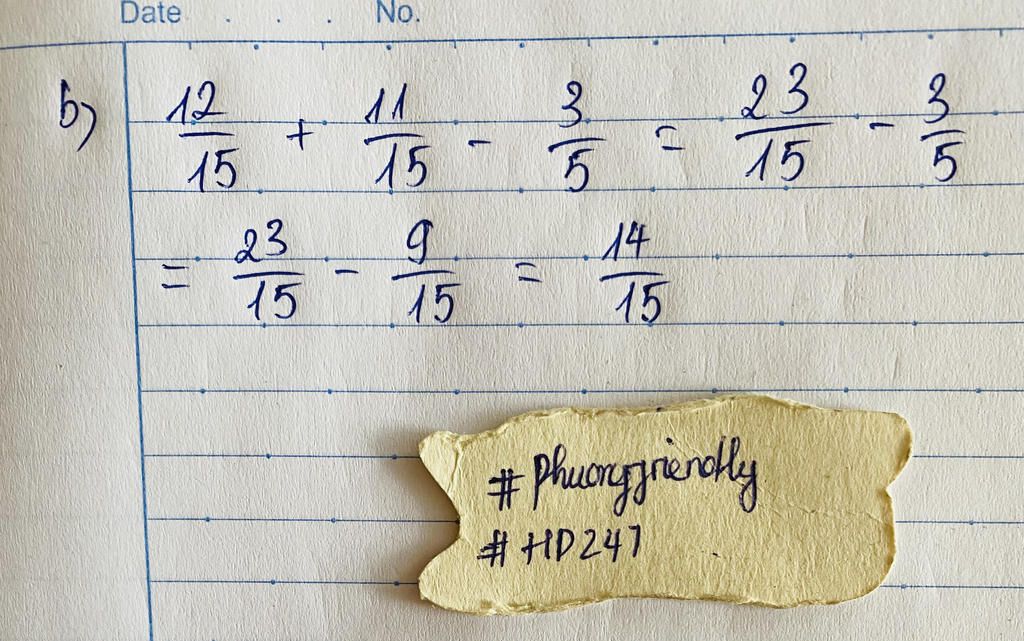 Date . . . No.
b) 12/15 + 11/15 - 3/5 = 23/15 - 3/5
= 23/15 - 9/15 = 14/15
# Phuongfriendly
# HD247